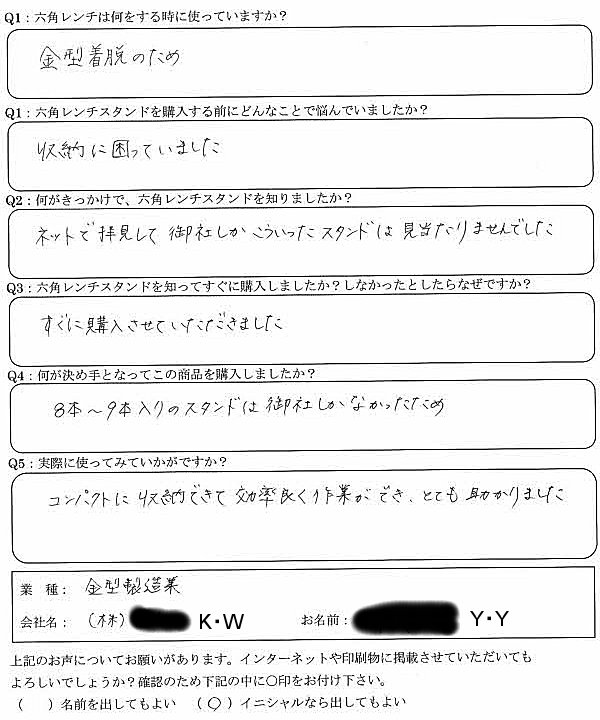 Q1：六角レンチは何をする時に使っていますか？
金型着脱のため
Q1：六角レンチスタンドを購入する前にどんなことで悩んでいましたか？
収納に困っていました
Q2：何がきっかけで、六角レンチスタンドを知りましたか？
ネットで拝見して 御社しか こういったスタンドは 見当たりませんでした
Q3：六角レンチスタンドを知ってすぐに購入しましたか？しなかったとしたらなぜですか？
すぐに購入させていただきました
Q4：何が決め手となってこの商品を購入しましたか？
8本～9本入りのスタンドは 御社しかなかったため
Q5：実際に使ってみていかがですか？
コンパクトに収納できて 効率良く作業ができ、とても助かりました
業 種： 金型製造業
会社名： （株） K・W お名前： Y・Y
上記のお声についてお願いがあります。インターネットや印刷物に掲載させていただいても
よろしいでしょうか？確認のため下記の中に〇印をお付け下さい。
（ ）名前を出してもよい （〇）イニシャルなら出してもよい